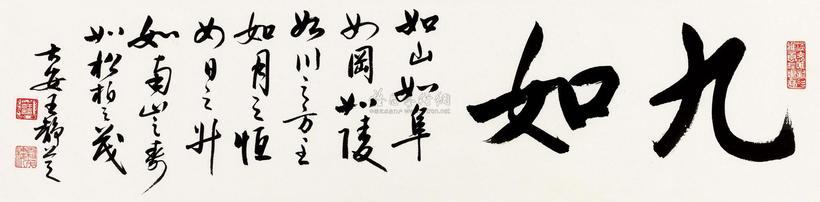 九如
如山如阜
如岡如陵
如川之方至
如月之恒
如日之升
如南山之壽
如松柏之茂
大安王靜芝